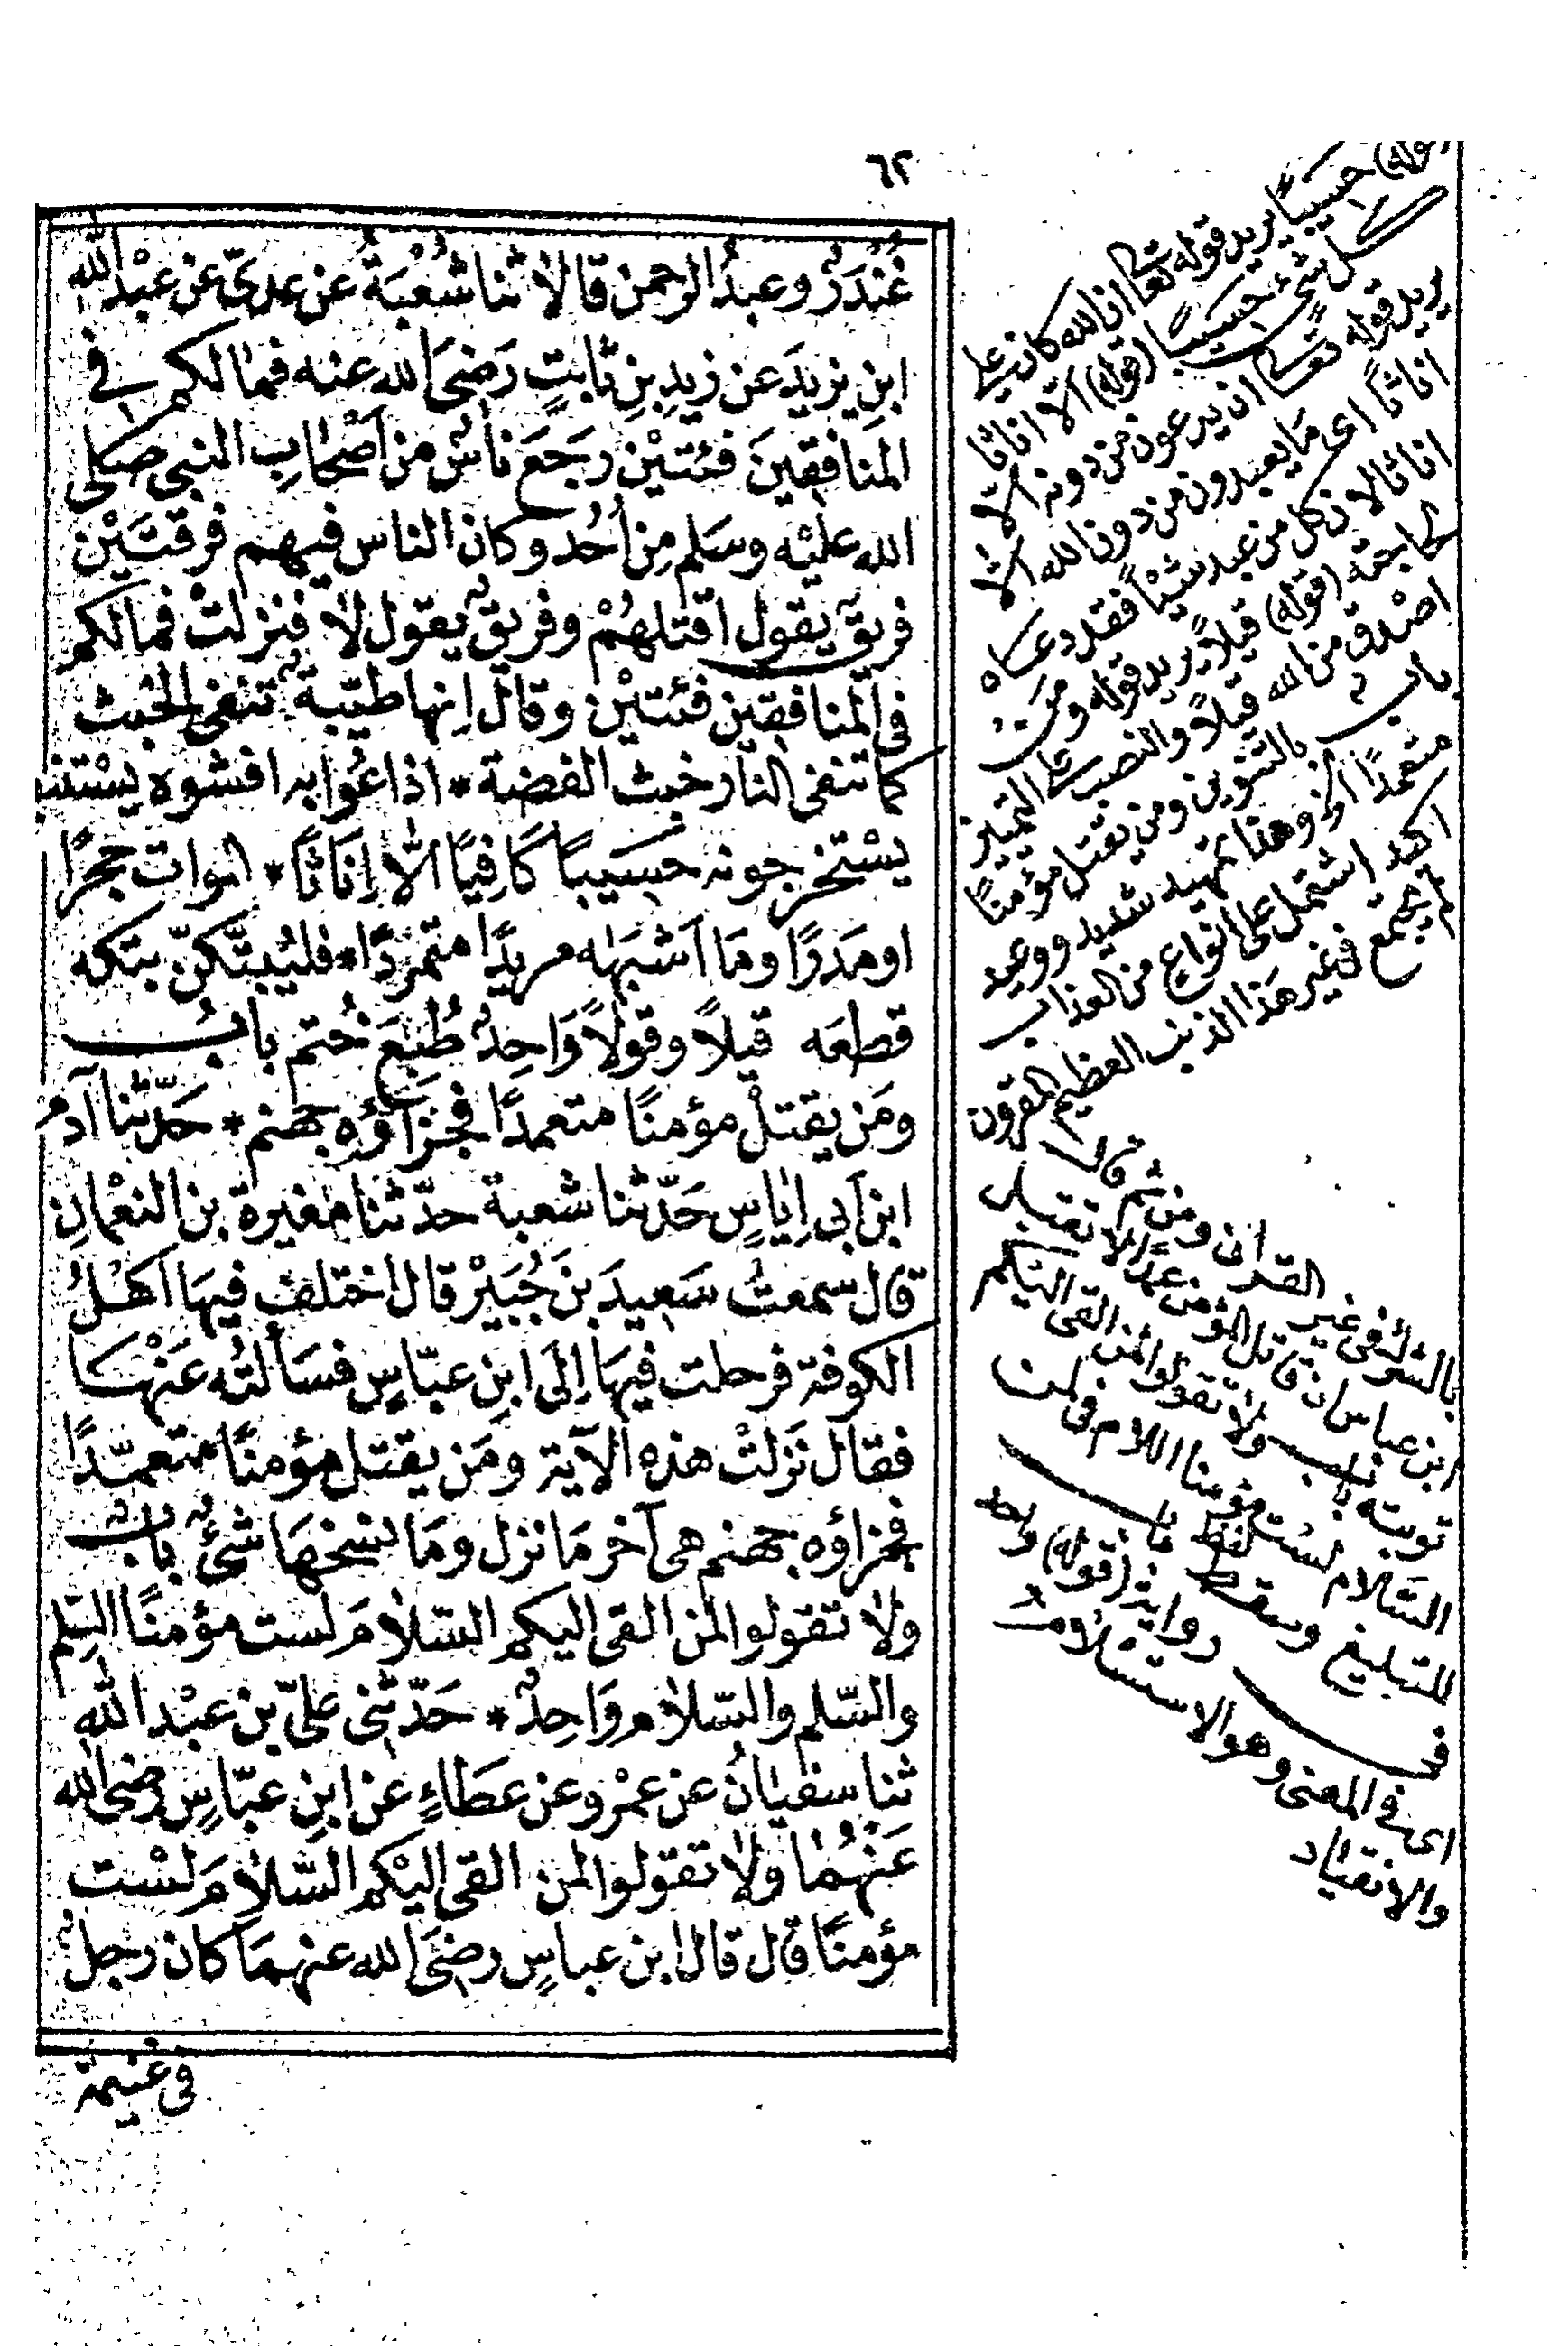 ٦٢
غُنْدَرٌ وعبدُ الرحمن قالا ثنا شُعْبَةُ عن عدىّ عن عبْد الله
ابنِ يزيدَ عن زيدِ بنِ ثابتٍ رَضىَ الله عنه فمالكم في
المنافقينَ فئتيْن رجَعَ ناسٌ من أصْحابِ النبى صلى
الله عليْه وسَلم مِن أُحُد وكان الناس فيهم فرقتَيْن
فريقٌ يقول اقتلهُمْ وفريقٌ يقول لا فنزلتْ فمالكم
فى المنافقين فئتيْن وقال اِنها طيّبة تنفى الخبث
كما تنفى النار خبث الفضة * اذاعُوا به افشوه يسْتنبطونه
يسْتخرجونه حسَيبًا كافيًا الّا اِنَاثًا * اموات حجرًا
اومَدرًا ومَا اَشبَهه مريدًا متمرّدًا * فليُبتّكنّ بتكه
قطعَه قيلًا وقولًا وَاحِدٌ طُبَعَ خُتم بابُ
ومَن يقتلْ مؤمنًا متعمدًا فجزآؤه جهنم * حَدّثنا آدم
ابن اَبى اِياسٍ حَدّثنا شعبة حدّثنا مغيرة بن النعْمانِ
قال سمعتُ سَعيدَ بنَ جُبَيْر قال اختلف فيهَا اَهْلُ
الكوفة فرحلت فيهَا اِلَى ابنِ عبّاسٍ فسَألتُه عَنْهَا
فقال نَزلتْ هذه الآية ومَن يقتل مؤمنًا متعمّدًا
فجزاؤه جهنم هى آخر مَا نزل ومَا نسَخهَا شئٌ بابٌ
ولا تقولوا لمن القى اليكم السّلامَ لست مؤمنًا السِّلم
والسّلم والسّلام وَاحِدٌ * حَدّثنى علىّ بن عبْد الله
ثنا سفيَانُ عن عمْرو عن عطَاءٍ عن ابنِ عبّاسٍ رضى الله
عَنْهُما ولا تقولوا لمن القى اليْكم السّلامَ لسْت
مؤمنًا قال قال ابن عباسٍ رضىَ الله عنهمَا كان رجلٌ
فى غنيمة
(قوله) حسيبًا يريد قوله تعالى ان الله كان على
كل شئ حسيبًا (قوله) الّا اناثا
يريد قوله تعالى ان يدعون من دونه الّا
اناثًا اى مَا يعبدون من دون الله الّا
اناثا لان كل من عبد شيْئًا فقد دعاه
لحاجته (قوله) قيلًا يريد قوله ومَنْ
اصْدق من الله قيلًا والنصب على التمييز
باب بالتنوين ومن يقتل مؤمنًا
متعمدًا الخ وهذا تهديد شديد ووعيد
اكيد اشتمل على انواع من العذاب
لم يجمع فى غير هَذا الذنب العظيم المقرون
بالشرك فى غير القرآن ومن ثم قال
ابن عباس ان قاتل المؤمن عمدًا لا تقبل
توبته باب ولا تقولوا لمن القى اليْكم
السّلام لسْت مؤمنا اللام فى لمن
للتبليغ وسقط لفظ باب
فى رواية (قوله) واحد
اى فى المعنى وهو الاستسلام
والانقياد